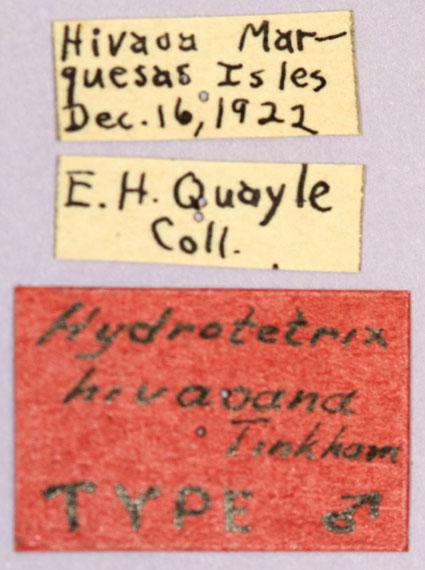 Hivaoa Mar-
quesas Isles
Dec. 16, 1922
E. H. Quayle
Coll.
Hydrotetrix
hivaoana
Tinkham
TYPE ♂